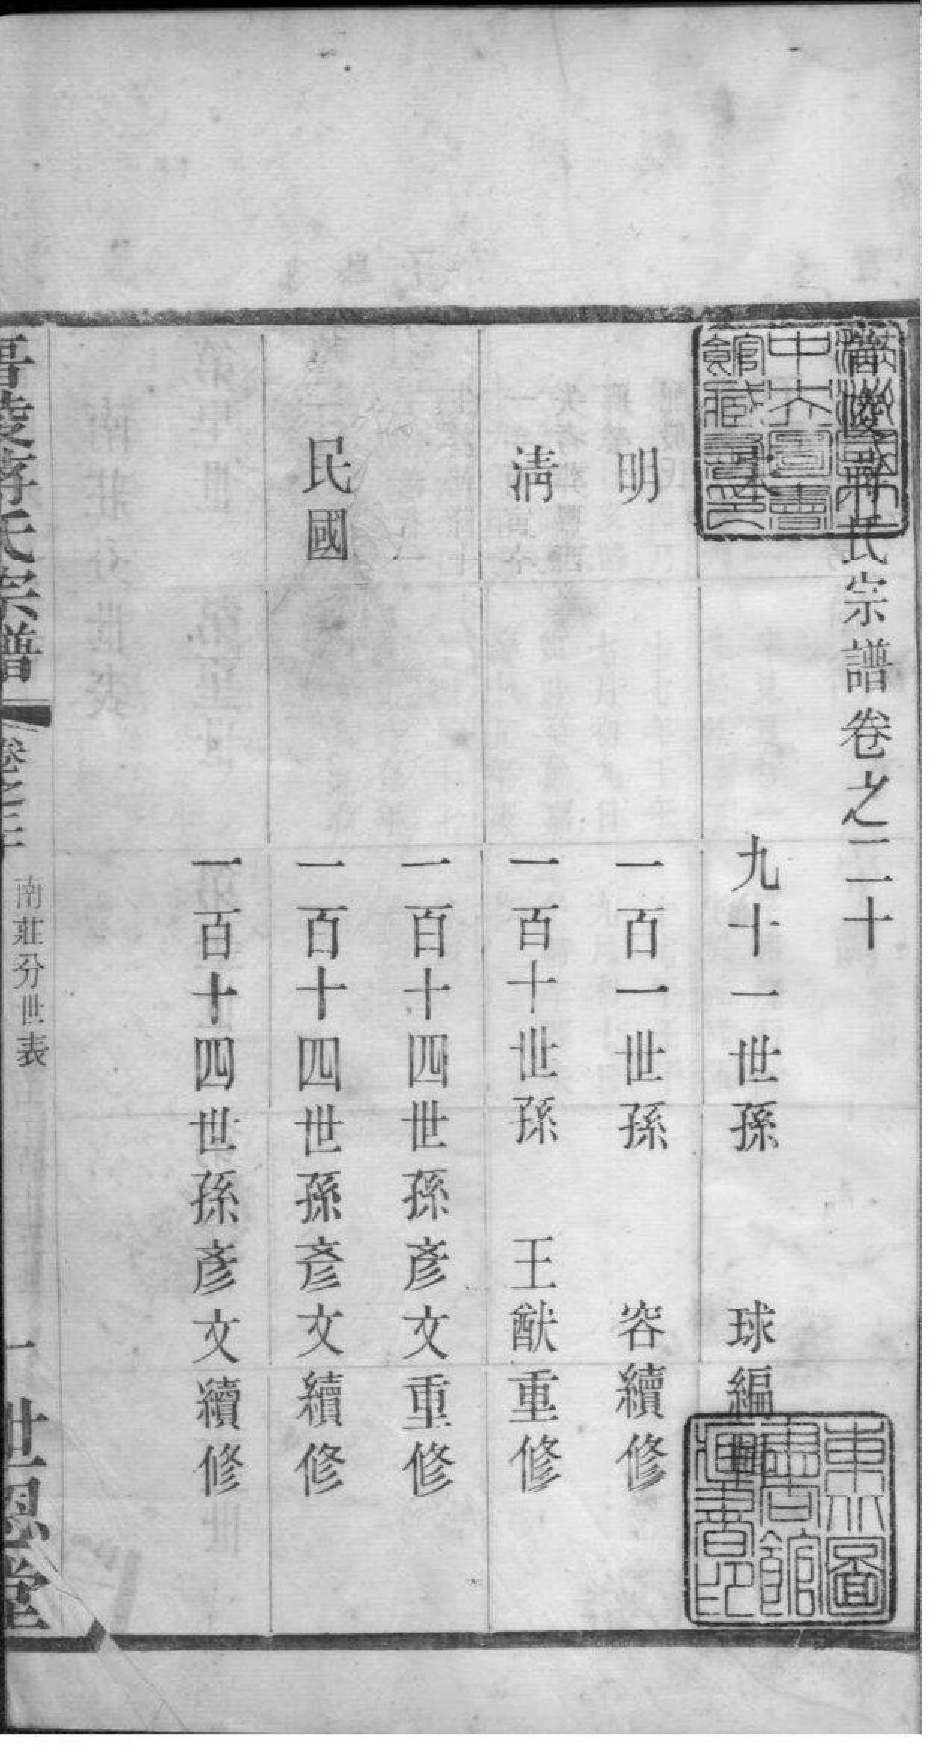 晉陵蔣氏宗譜卷之二十
九十一世孫 球編輯
明 一百一世孫 容續修
清 一百十世孫 王猷重修
一百十四世孫彥文重修
民國 一百十四世孫彥文續修
一百十四世孫彥文續修
晉陵蔣氏宗譜 卷之二十 南莊分世表 一 世恩堂